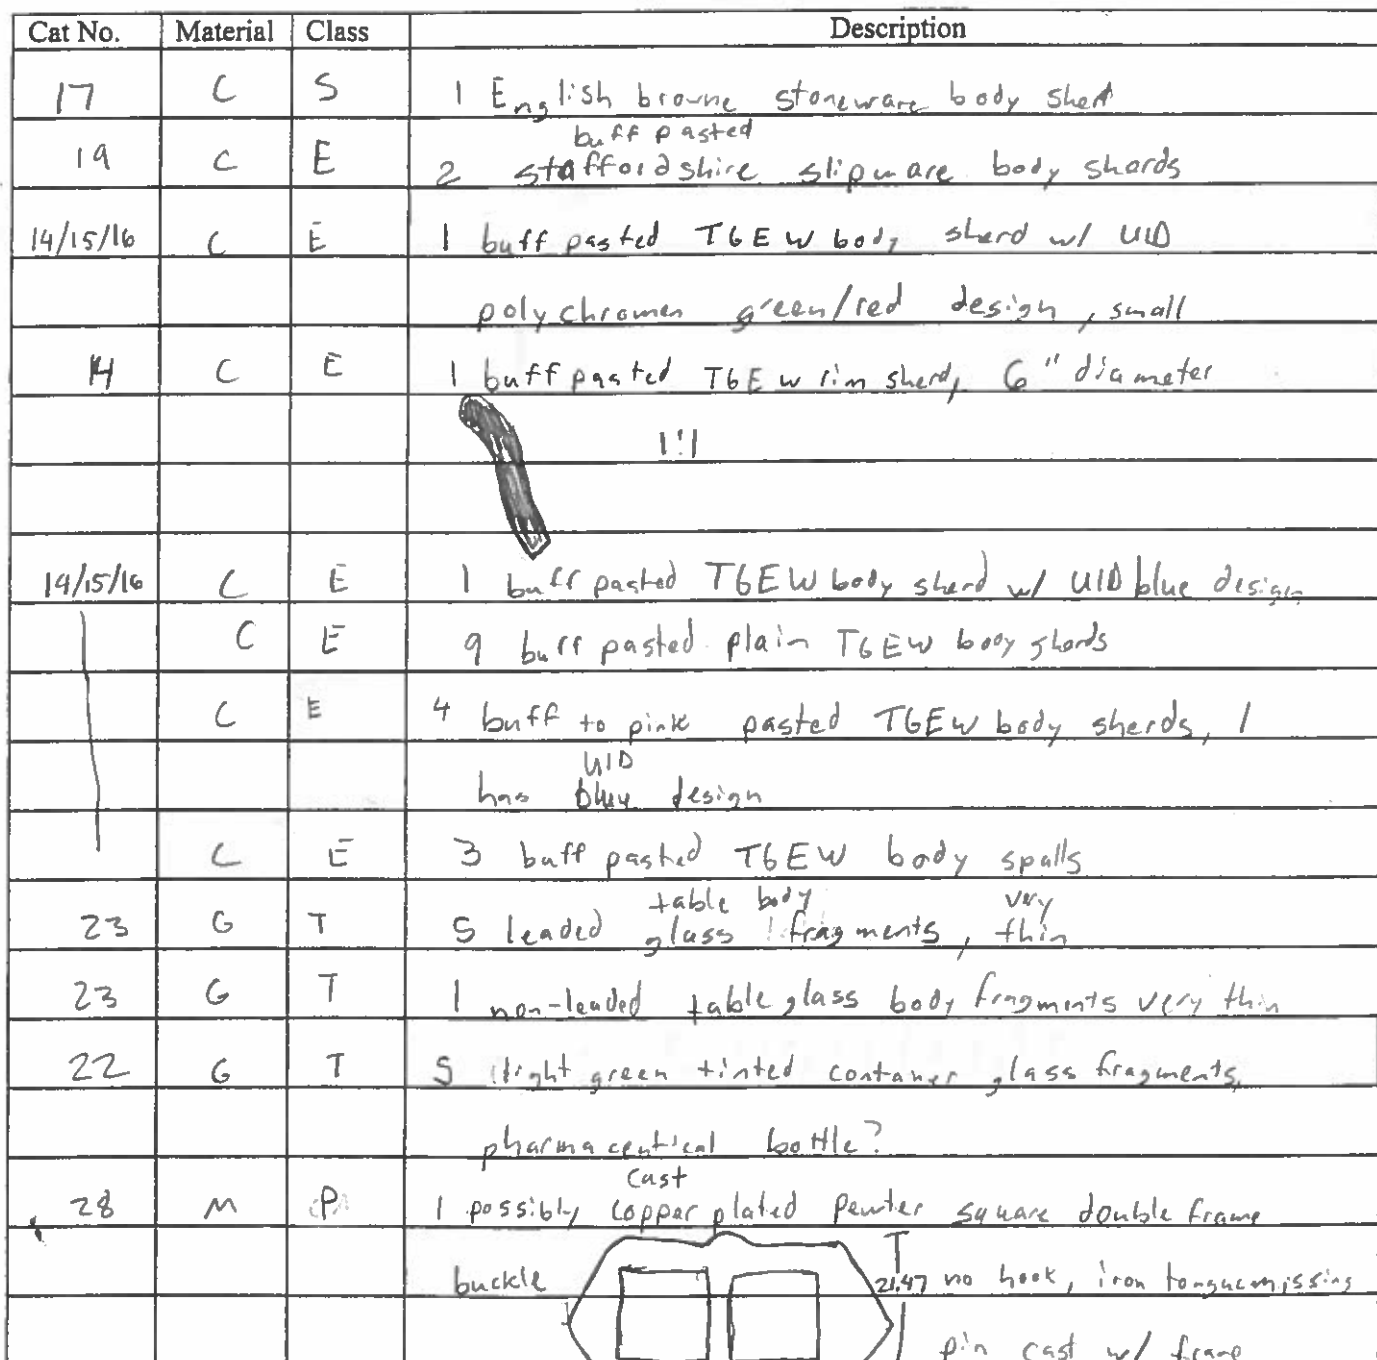 Cat No. Material Class Description
17 C S 1 English browne stoneware body sherd
buff pasted
19 C E 2 staffordshire slipware body sherds
14/15/16 C E 1 buff pasted TGEW body sherd w/ UID
polychromen green/red design, small
14 C E 1 buff pasted TGEW rim sherd, 6" diameter
1:1
14/15/16 C E 1 buff pasted TGEW body sherd w/ UID blue design
C E 9 buff pasted plain TGEW body sherds
C E 4 buff to pink pasted TGEW body sherds, 1
UID
has blue design
C E 3 buff pasted TGEW body spalls
table body very
23 G T 5 leaded glass fragments, thin
23 G T 1 non-leaded table glass body fragments very thin
22 G T 5 light green tinted container glass fragments,
pharmaceutical bottle?
cast
28 M P 1 possibly copper plated pewter square double frame
buckle 21.47 no hook, iron tongue missing
pin cast w/ frame